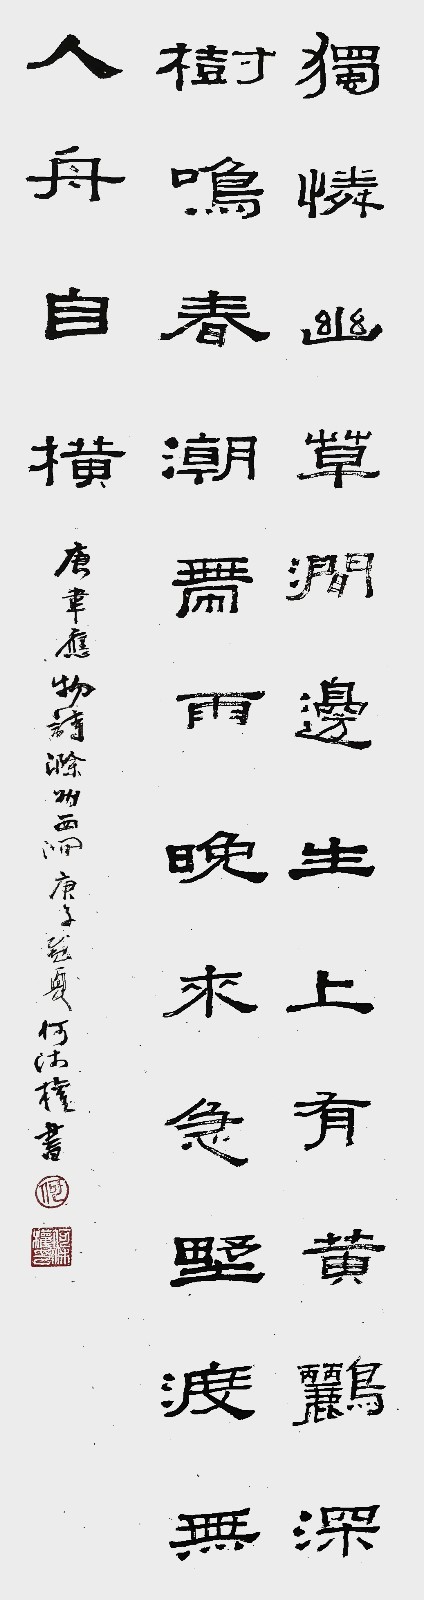 獨憐幽草澗邊生上有黄鸝深
樹鳴春潮帶雨晚來急野渡無
人舟自橫
唐韋應物詩滁州西澗庚子夏何沛權書
何